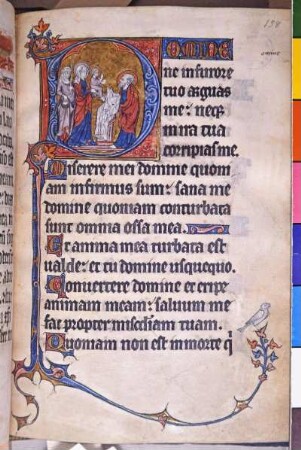 Domine
ne in furore
tuo arguas
me: neq;
in ira tua
corripias me.
Miserere mei domine quoni
am infirmus sum: sana me
domine quoniam conturbata
sunt omnia ossa mea.
Et anima mea turbata est
valde: et tu domine usquequo.
Convertere domine et eripe
animam meam: saluum me
fac propter misericdiam tuam.
Quoniam non est in morte q